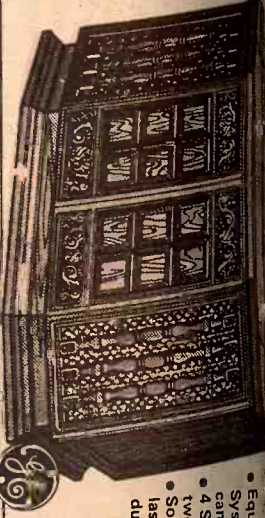 • Equ
Sys
can
• 4 S
two
• So
las
du
GE